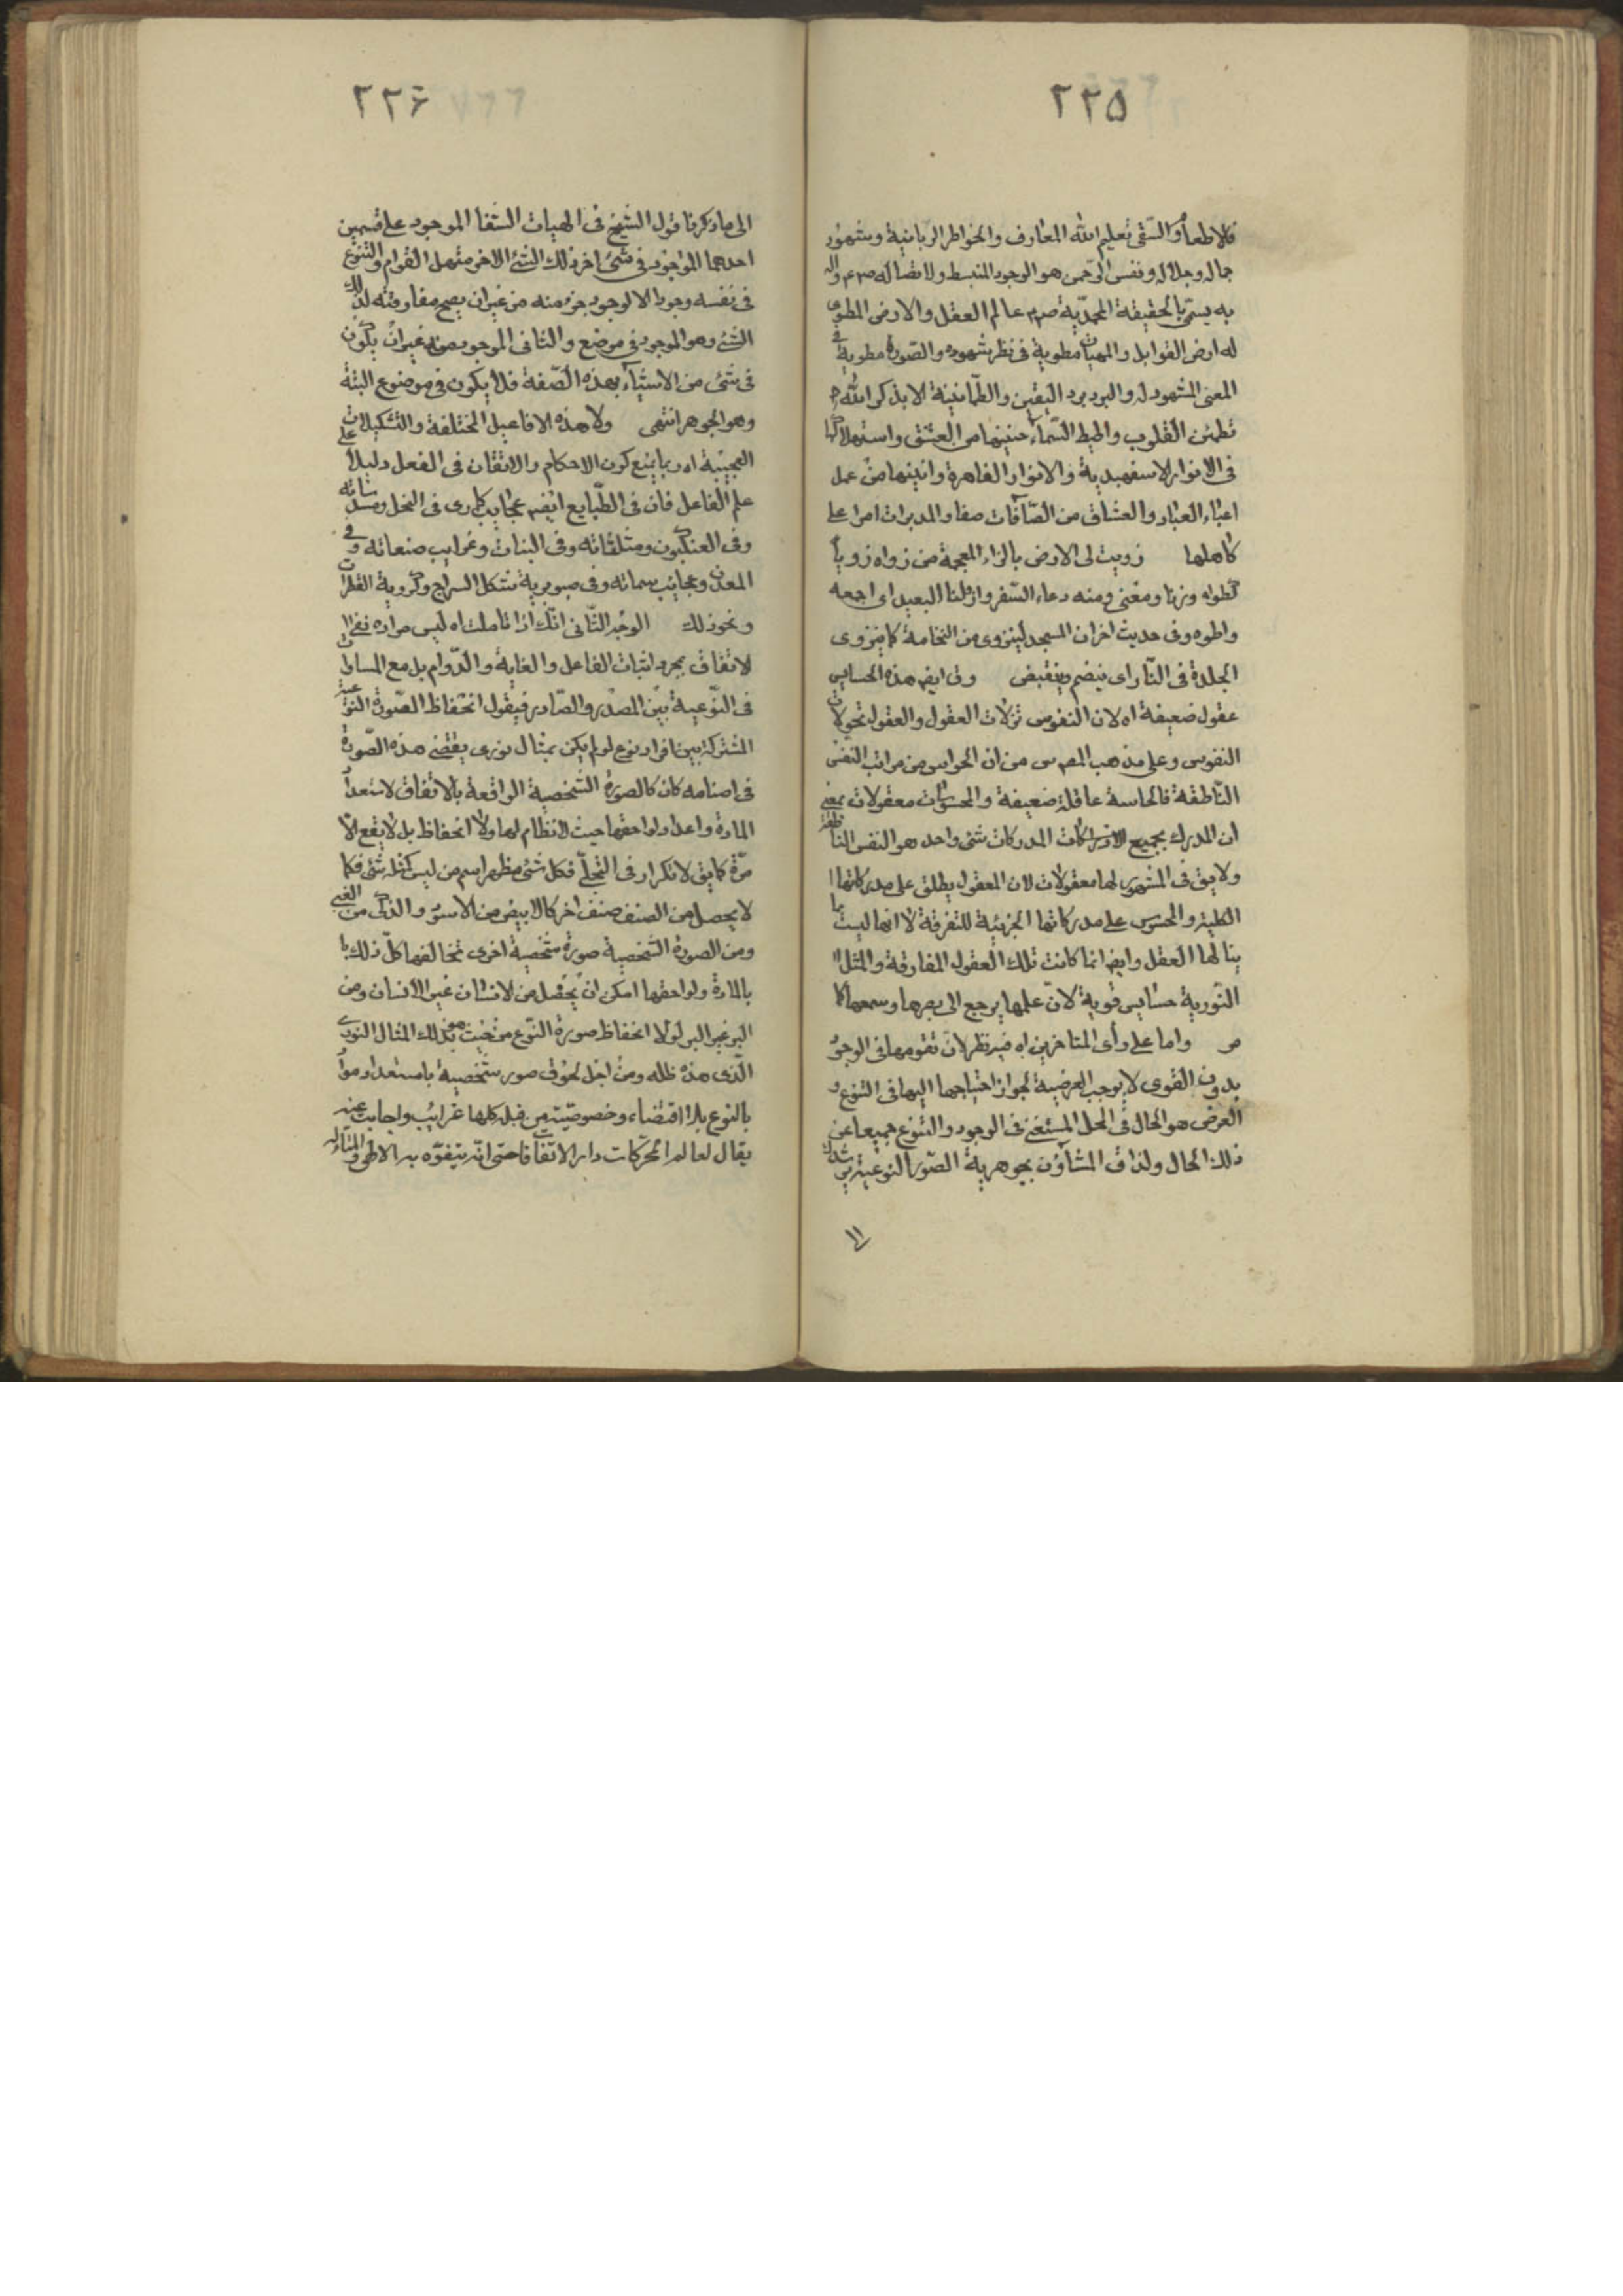 ٢٢٥
فالاطعام والسقى تعليم الله المعارف والخواطر الربانية وشهود
جماله وجلاله ونفس الرحمن هو الوجود المنبسط ولاتصاله صم واله
به يسمى بالحقيقة المحمدية صم عالم العقل والارض المطوى
له ارض القوابل والمهيات مطوية فى نظر شهوده والصورة مطوية فى
المعنى المشهود له والبرد برد اليقين والطمانينة الا بذكر الله
تطمئن القلوب واطيط السماء حنينها من العشق واستهلاكها
فى الانوار الاسفهبدية والانوار القاهرة وانينها من عمل
اعباء العباد والعشاق من الصافات صفا والمدبرات امرا على
كاهلها زويت لى الارض بالزاء المعجمة من زواه زويا
كطواه وزنا ومعنى ومنه دعاء السفر وازولنا البعيد اى اجمعه
واطوه وفى حديث اخران المسجد لينزوى من النخامة كما ينزوى
الجلدة فى النار اى ينضم وينقبض وفى ايض هذه الحسايس
عقول ضعيفة اه لان النفوس تنزلات العقول والعقول تحولات
النفوس وعلى مذهب المص س من ان الحواس من مراتب النفس
الناطقة فالحاسة عاقلة ضعيفة والمحسوسات معقولات بمعنى
ان المدرك بجميع الادراكات المدركات شئ واحد هو النفس الناطقة
ولا يق فى المشهور لها معقولات لان المعقول يطلق على مدركاتها
الكلية والمحسوس على مدركاتها الجزئية للتفرقة لا انها ليست مما
ينالها العقل وايض انما كانت تلك العقول المفارقة والمثل
النورية حسايس قوية لان علمها يرجع الى بصرها وسمعها كما
مر واما على رأى المتاخرين اه فيه نظر لان تقومها فى الوجود
بدون القوى لا يوجب العرضية لجواز احتياجها اليها فى التنوع و
العرض هو الحال فى المحل المستغنى فى الوجود والتنوع جميعا عن
ذلك الحال ولذا ق المشاؤن بجوهرية الصور النوعية
٢٢۶
الى ما ذكرنا قول الشيخ فى الهيات الشفا الموجود على قسمين
احدهما الموجود فى شئ اخر ذلك الشئ الاخر متحصل القوام والتنوع
فى نفسه وجودا لا كوجود جزء منه من غير ان يصح مفارقته لذلك
الشئ وهو الموجود فى موضوع والثانى الموجود من غير ان يكون
فى شئ من الاشياء بهذه الصفة فلا يكون فى موضوع البتة
وهو الجوهر انتهى ولا هذه الافاعيل المختلفة والتشكيلات
العجيبة اه ربما يمنع كون الاحكام والاتقان فى الفعل دليلا على
علم الفاعل فان فى الطبايع ايض عجايب كما رى فى النحل ومسدساته
وفى العنكبوت ومثلثاته وفى النبات وغرايب صنعاته وفى
المعدن وعجايب سماته وفى صنوبرية شكل السراج وكروية القطرات
ونحو ذلك الوجه الثانى انك اذا تاملت اه ليس مراده نفى
الاتفاق بمجرد اثبات الفاعل والغاية والدوام بل مع المساوات
فى النوعية بين المصدر والصادر فيقول انحفاظ الصورة النوعية
المشتركة بين افراد نوع لو لم يكن بمثال نورى يقتضى هذه الصورة
فى اصنامه كان كالصورة الشخصية الواقعة بالاتفاق لاستعداد
المادة واعداد لواحقها حيث لا نظام لها ولا انحفاظ بل لا يقع الا
مرة كما يق لا تكرار فى التجلى فكل شئ مظهر اسم من ليس كمثله شئ فكما
لا يحصل من الصنف صنف اخر كالابيض من الاسود والذكى من الغبى
ومن الصورة الشخصية صورة شخصية اخرى تخالفها كل ذلك
بالمادة ولواحقها امكن ان يحصل من الانسان غير الانسان ومن
البر غير البر لولا انحفاظ صورة النوع من حيث هو بذلك المثال النورى
الذى هذه ظله ومن اجل لحوق صور شخصية باستعداد مواد
بالنوع بلا اقتضاء وخصوصيته من قبله كلها غرايب واجانب عنه
يقال لعالم الحركات دار الاتفاقات حتى انه يتفوه به الالهى والمتاله